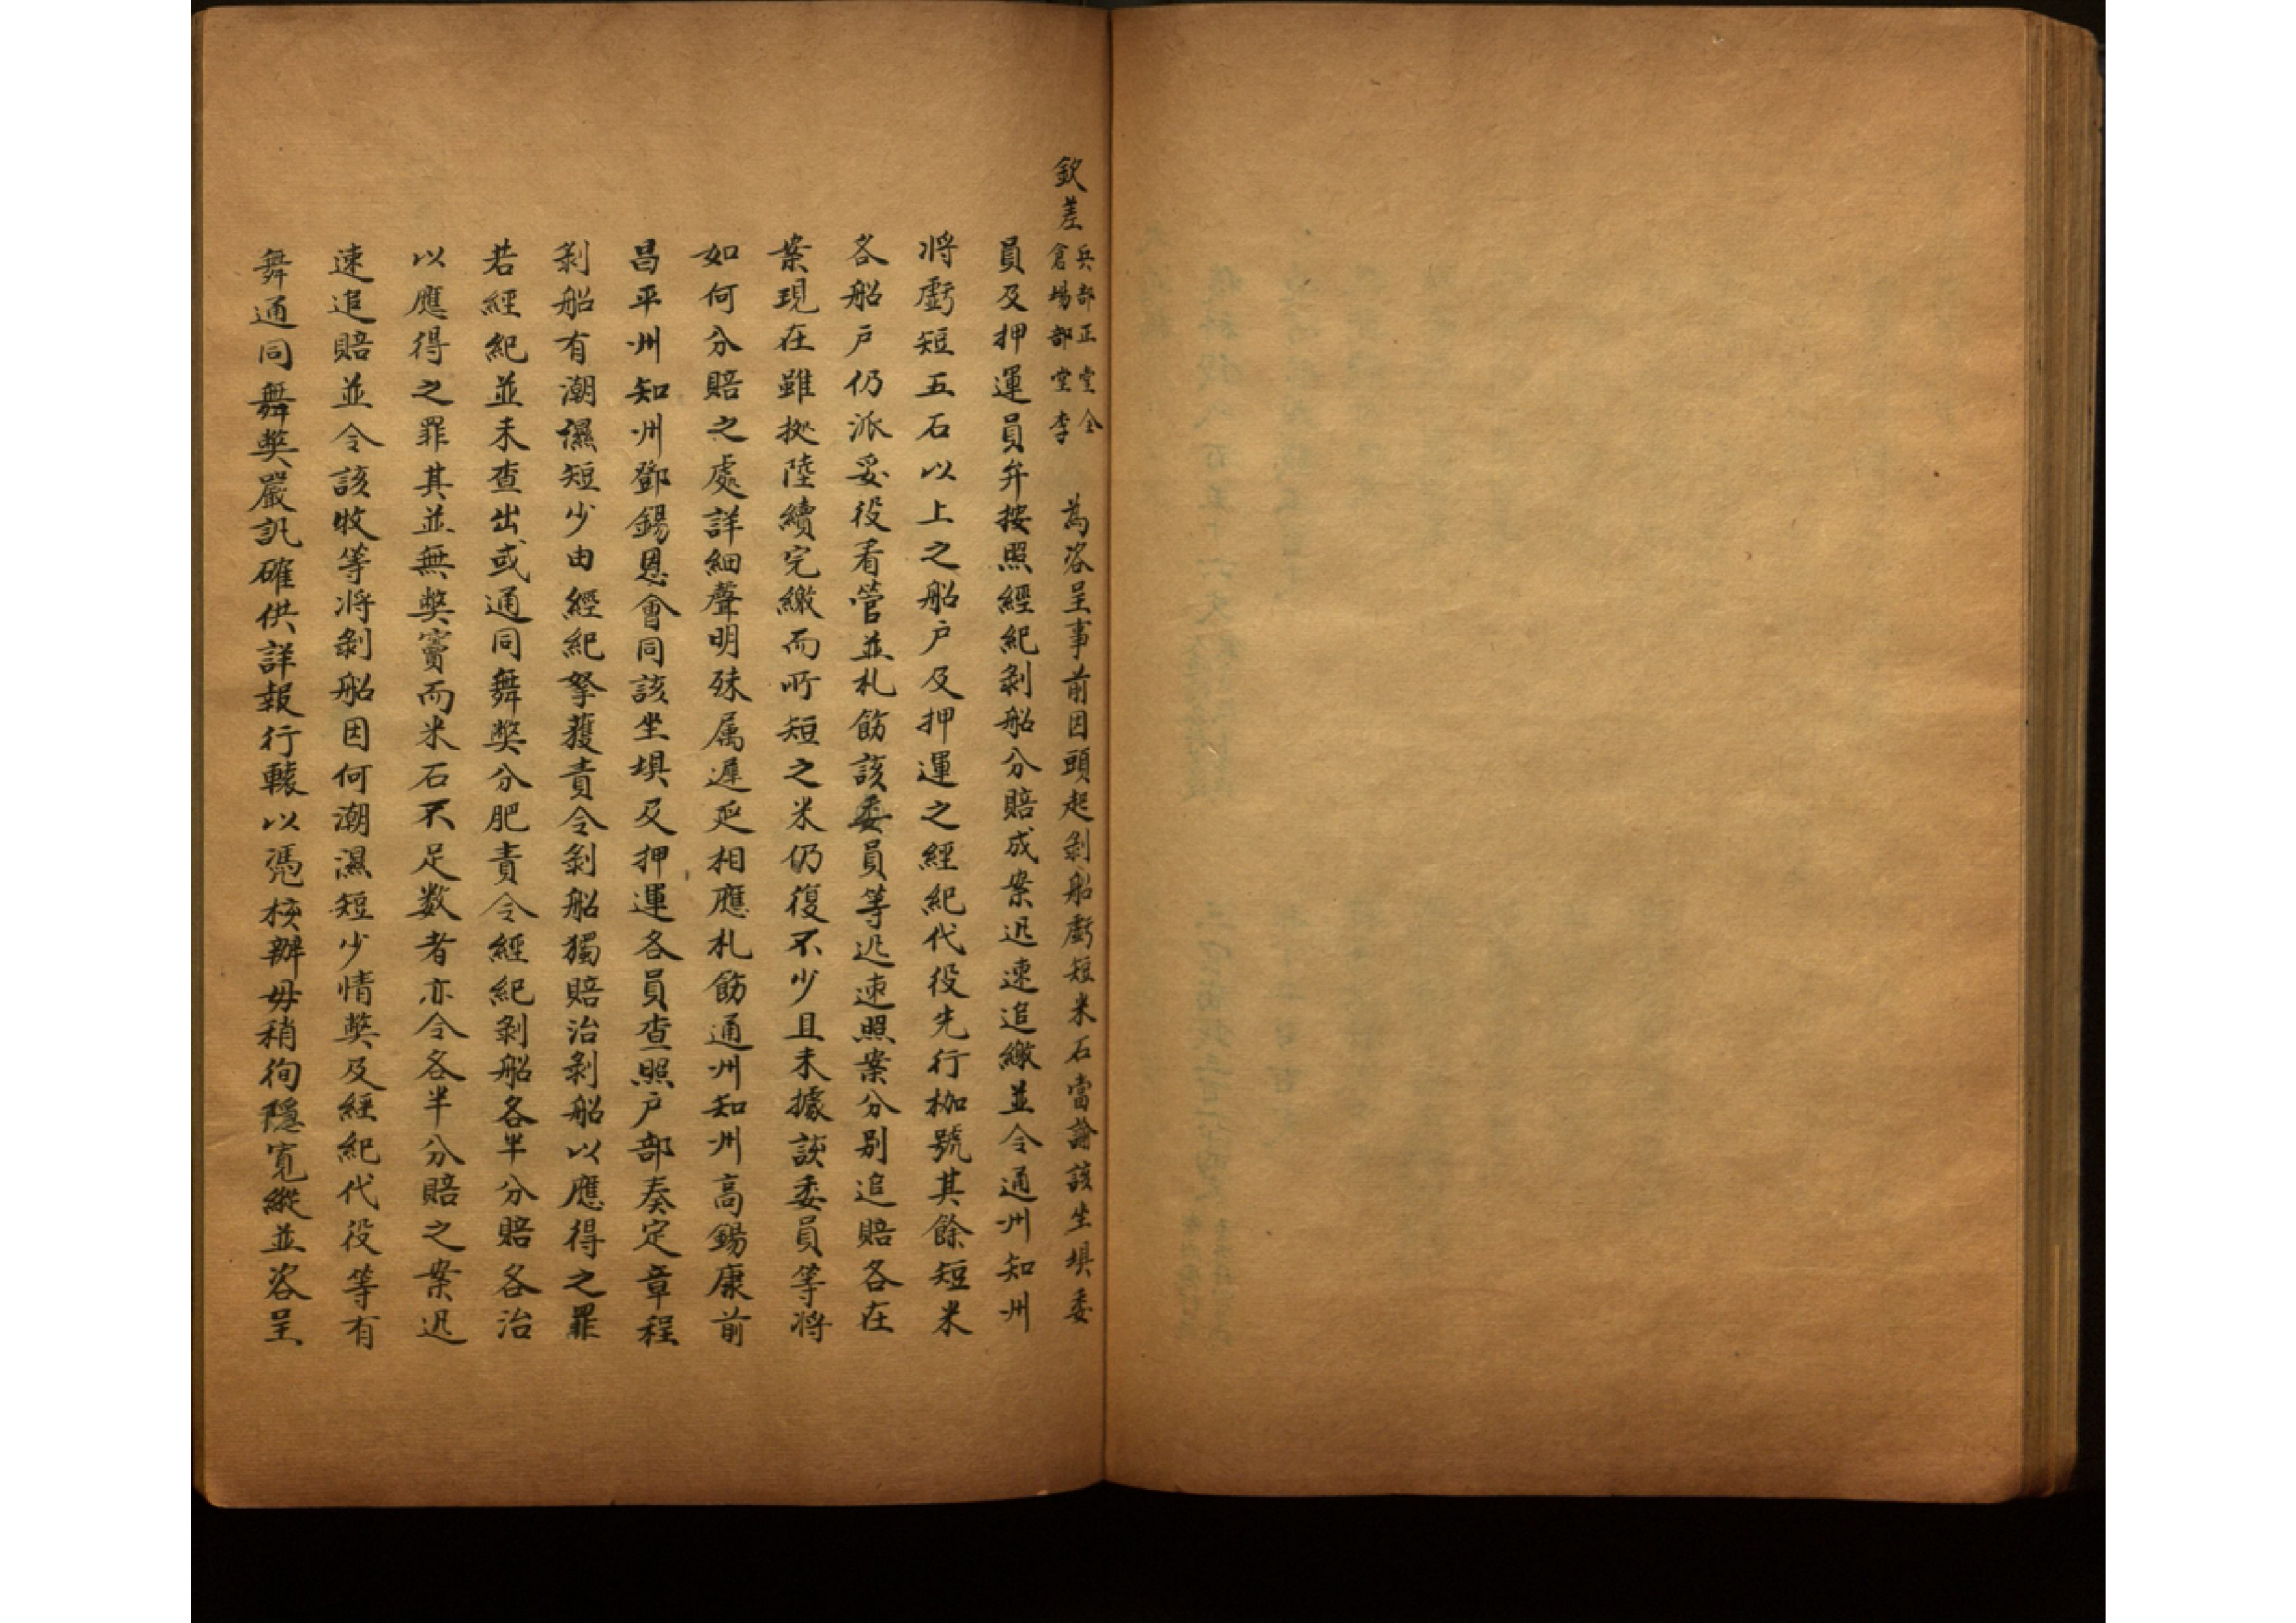 欽差兵部正堂全倉場部堂李　為咨呈事前因頭起剝船虧短米石當諭該坐坝委
員及押運員弁按照經紀剝船分賠成案迅速追繳並令通州知州
將虧短五石以上之船戶及押運之經紀代役先行枷號其餘短米
各船戶仍派妥役看管並札飭該委員等迅速照案分别追賠各在
案現在雖㨿陸續完繳而所短之米仍復不少且未據該委員等將
如何分賠之處詳細聲明殊属遲延相應札飭通州知州高錫康前
昌平州知州鄧錫恩會同該坐坝及押運各員查照户部奏定章程
剝船有潮濕短少由經紀拏獲責令剝船獨賠治剝船以應得之罪
若經紀並未查出或通同舞獘分肥責令經紀剝船各半分賠各治
以應得之罪其並無獘竇而米石不足数者亦令各半分賠之案迅
速追賠並令該牧等將剝船因何潮濕短少情獘及經紀代役等有
舞通同舞獘嚴訊確供詳報行轅以凴核辦毋稍徇隱寬縱並咨呈